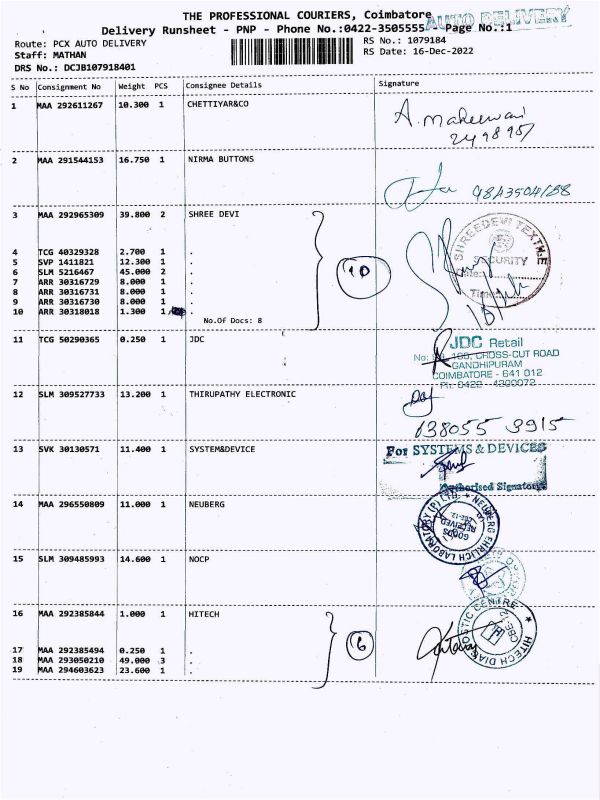 THE PROFESSIONAL COURIERS, Coimbatore
AUTO DELIVERY
Delivery Runsheet - PNP - Phone No.:0422-3505555 - Page No.:1
Route: PCX AUTO DELIVERY
RS No.: 1079184
Staff: MATHAN
RS Date: 16-Dec-2022
DRS No.: DCJB107918401
S No Consignment No Weight PCS Consignee Details Signature
1 MAA 292611267 10.300 1 CHETTIYAR&CO
2 MAA 291544153 16.750 1 NIRMA BUTTONS
3 MAA 292965309 39.800 2 SHREE DEVI
4 TCG 40329328 2.700 1 .
5 SVP 1411821 12.300 1 .
6 SLM 5216467 45.000 2 .
7 ARR 30316729 8.000 1 .
8 ARR 30316731 8.000 1 .
9 ARR 30316730 8.000 1 .
10 ARR 30318018 1.300 1 .
No.Of Docs: 8
10
SHREEDEVI TEXTILE
SECURITY
Date:
Time:
11 TCG 50290365 0.250 1 JDC
JDC Retail
CROSS-CUT ROAD
GANDHIPURAM
COIMBATORE - 641 012
Ph: 0422 - 4300072
12 SLM 309527733 13.200 1 THIRUPATHY ELECTRONIC
13 SVK 30130571 11.400 1 SYSTEM&DEVICE
For SYSTEMS & DEVICES
Authorised Signatory
14 MAA 296550809 11.000 1 NEUBERG
NEUBERG EHRLICH LABORATORY (P) LTD.
GOODS
RECEIVED
15 SLM 309485993 14.600 1 NOCP
16 MAA 292385844 1.000 1 HITECH
17 MAA 292385494 0.250 1 .
18 MAA 293050210 49.000 3 .
19 MAA 294603623 23.600 1 .
6
HITECH DIAGNOSTIC CENTRE
CBE